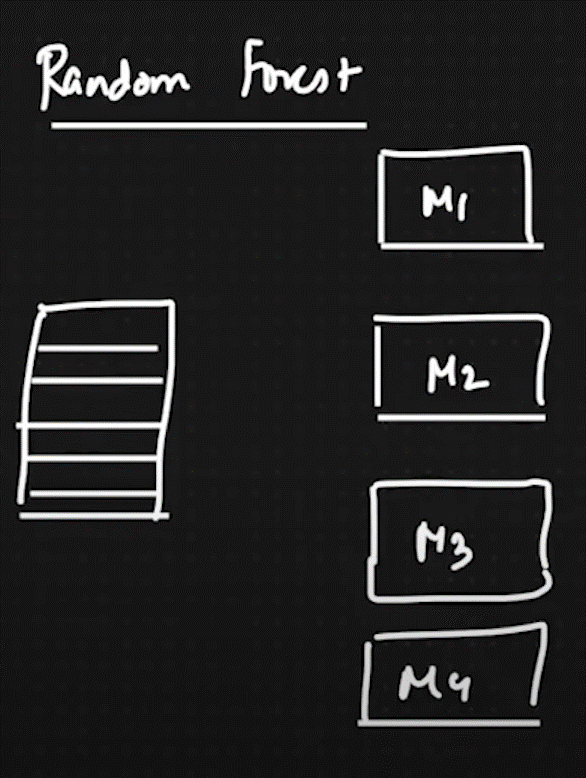 Random Forest
M1
M2
M3
M4